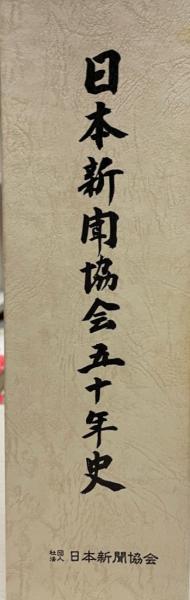 日本新聞協会五十年史
社団法人 日本新聞協会